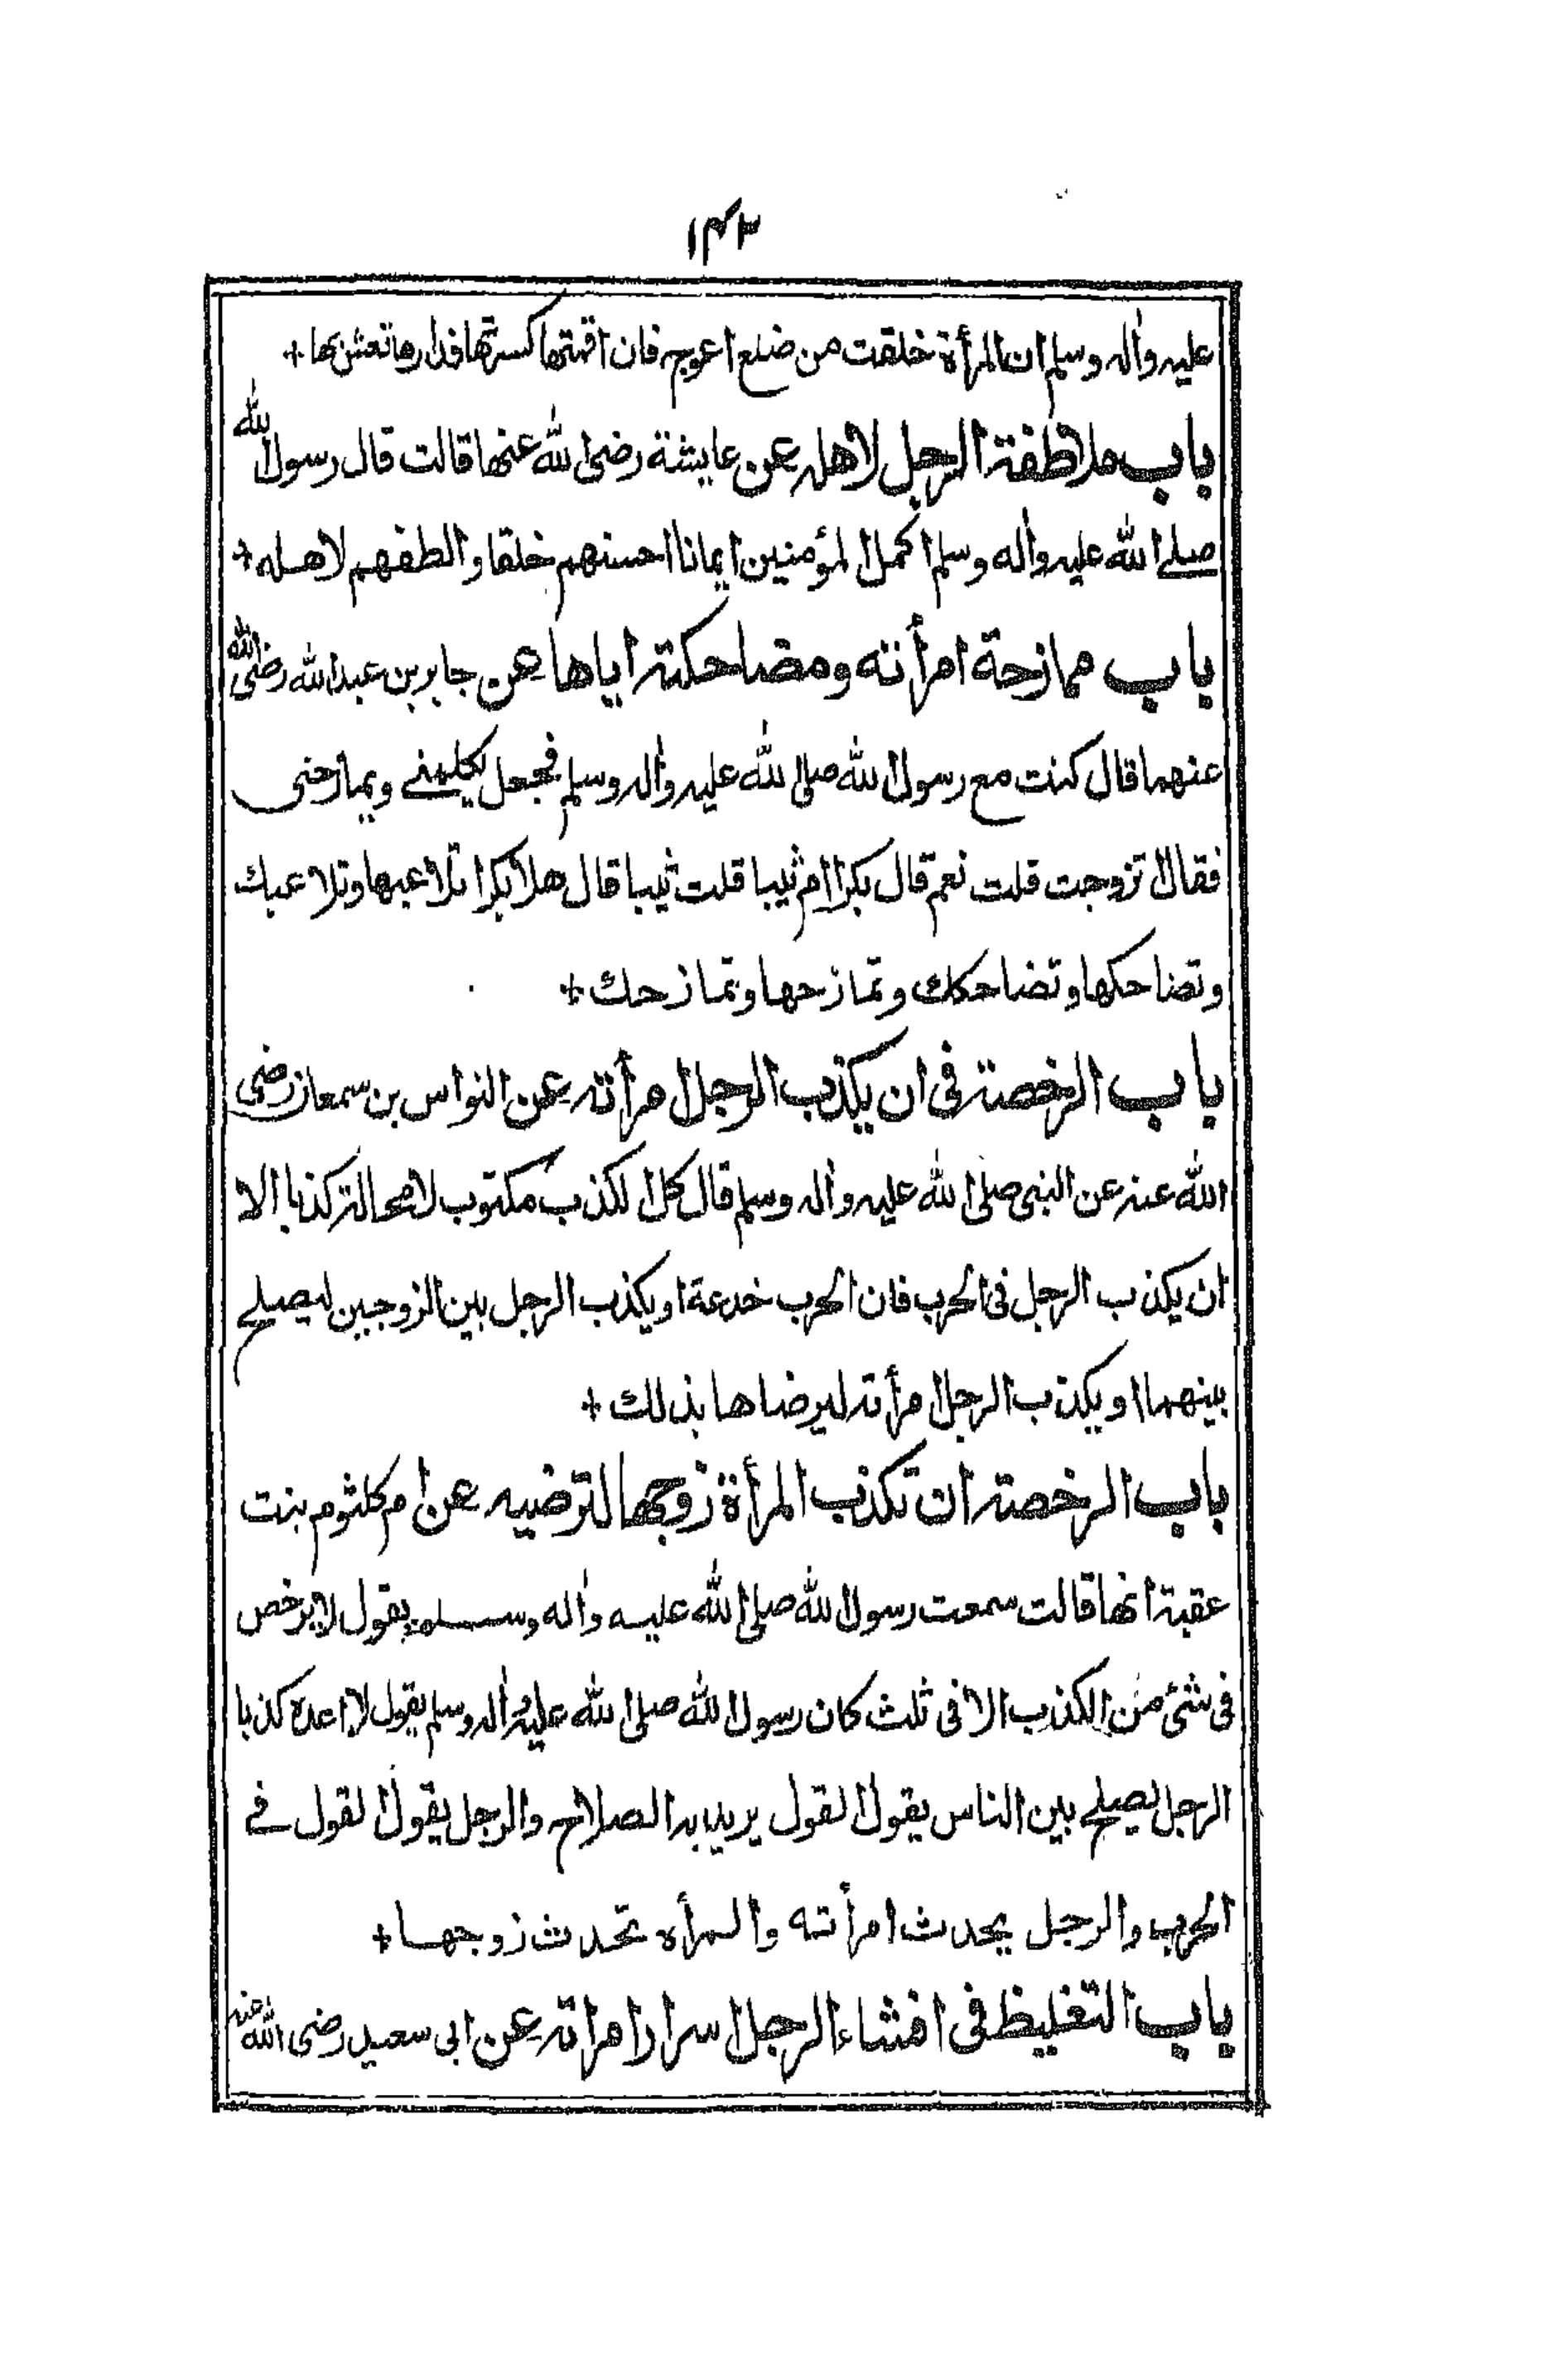 ١٤٢
عليه وأله وسلم ان المرأة خلقت من ضلع اعوج فان اقمتها كسرتها فدارها تعش بها +
باب ملاطفة الرجل لاهله عن عايشة رضى الله عنها قالت قال رسول الله
صلے الله عليه وأله وسلم اكمل المؤمنين ايمانا احسنهم خلقا والطفهم لاهله +
باب ممازحة امرأته ومضاحكته اياها عن جابر بن عبد الله رضى الله
عنهما قال كنت مع رسول الله صلى الله عليه وأله وسلم فجعل يكلمنے ويمازحنى
فقال تزوجت قلت نعم قال بكرا ام ثيبا قلت ثيبا قال هلا بكرا تلاعبها وتلاعبك
وتضاحكها وتضاحكك وتمازحها وتمازحك +
باب الرخصة فى ان يكذب الرجل امرأته عن النواس بن سمعان رضى
الله عنه عن النبى صلى الله عليه وأله وسلم قال كل الكذب مكتوب لا محالة كذبا الا
ان يكذب الرجل فى الحرب فان الحرب خدعة او يكذب الرجل بين الزوجين ليصلح
بينهما او يكذب الرجل امرأته ليرضاها بذلك +
باب الرخصة ان تكذب المرأة زوجها لترضيه عن ام كلثوم بنت
عقبة انها قالت سمعت رسول الله صلى الله عليه وأله وسلم يقول لا يرخص
فى شئ من الكذب الا فى ثلث كان رسول الله صلى الله عليه وأله وسلم يقول لا اعده كذبا
الرجل يصلح بين الناس يقول القول يريد به الصلاح والرجل يقول القول فے
الحرب والرجل يحدث امرأته والمرأه تحدث زوجها +
باب التغليظ فى افشاء الرجل اسرار امراته عن ابى سعيد رضى الله عنه